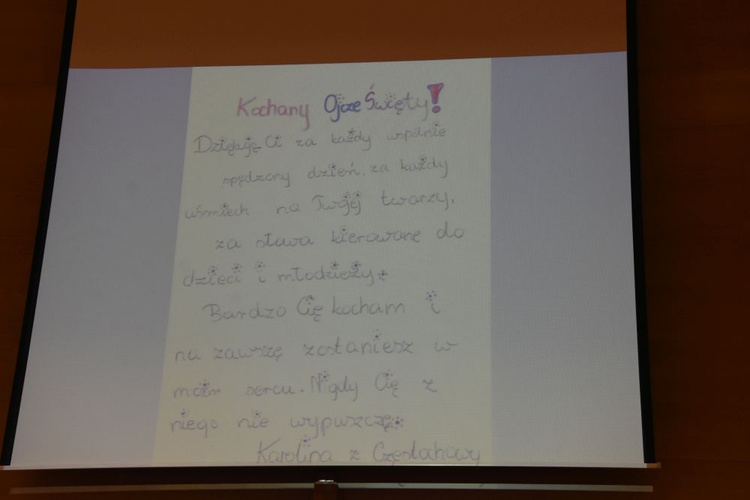 Kochany Ojcze Święty!
Dziękuję Ci za każdy wspólnie
spędzony dzień, za każdy
uśmiech na Twojej twarzy,
za słowa kierowane do
dzieci i młodzieży.
Bardzo Cię kocham i
na zawszę zostaniesz w
moim sercu. Nigdy Cię z
niego nie wypuszczę.
Karolina z Częstochowy